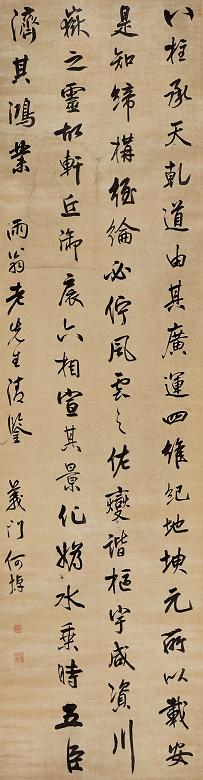 八柱承天乾道由其廣運四維紀地坤元所以載安
是知締構經綸必佇風雲之佐變諧樞宇咸資川
嶽之靈故軒丘御宸六相宣其景化媯水乘時五臣
濟其鴻業 雨翁老先生清鑒 義门何焯